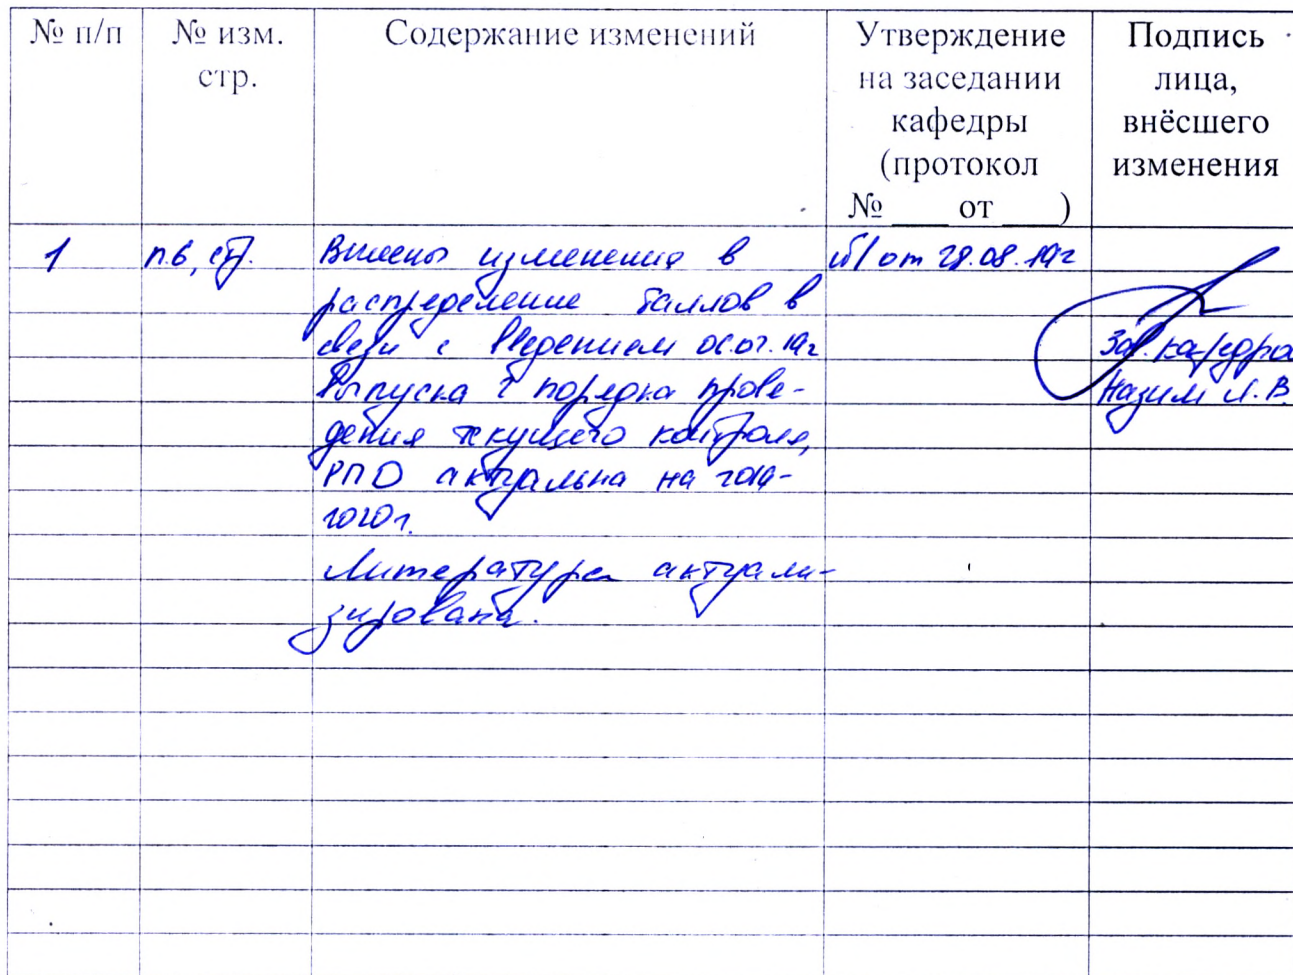 № п/п
№ изм.
стр.
Содержание изменений
Утверждение
на заседании
кафедры
(протокол
№ ____ от ____)
Подпись
лица,
внёсшего
изменения
1
п.6, стр.
Внесены изменения в
распределение баллов в
связи с введением 06.07.19г
Выпуска 2 порядка прове-
дения текущего контроля,
РПД актуальна на 2019-
2020г.
Литература актуали-
зирована.
от 28.08.19г
Зав. кафедрой
Назим